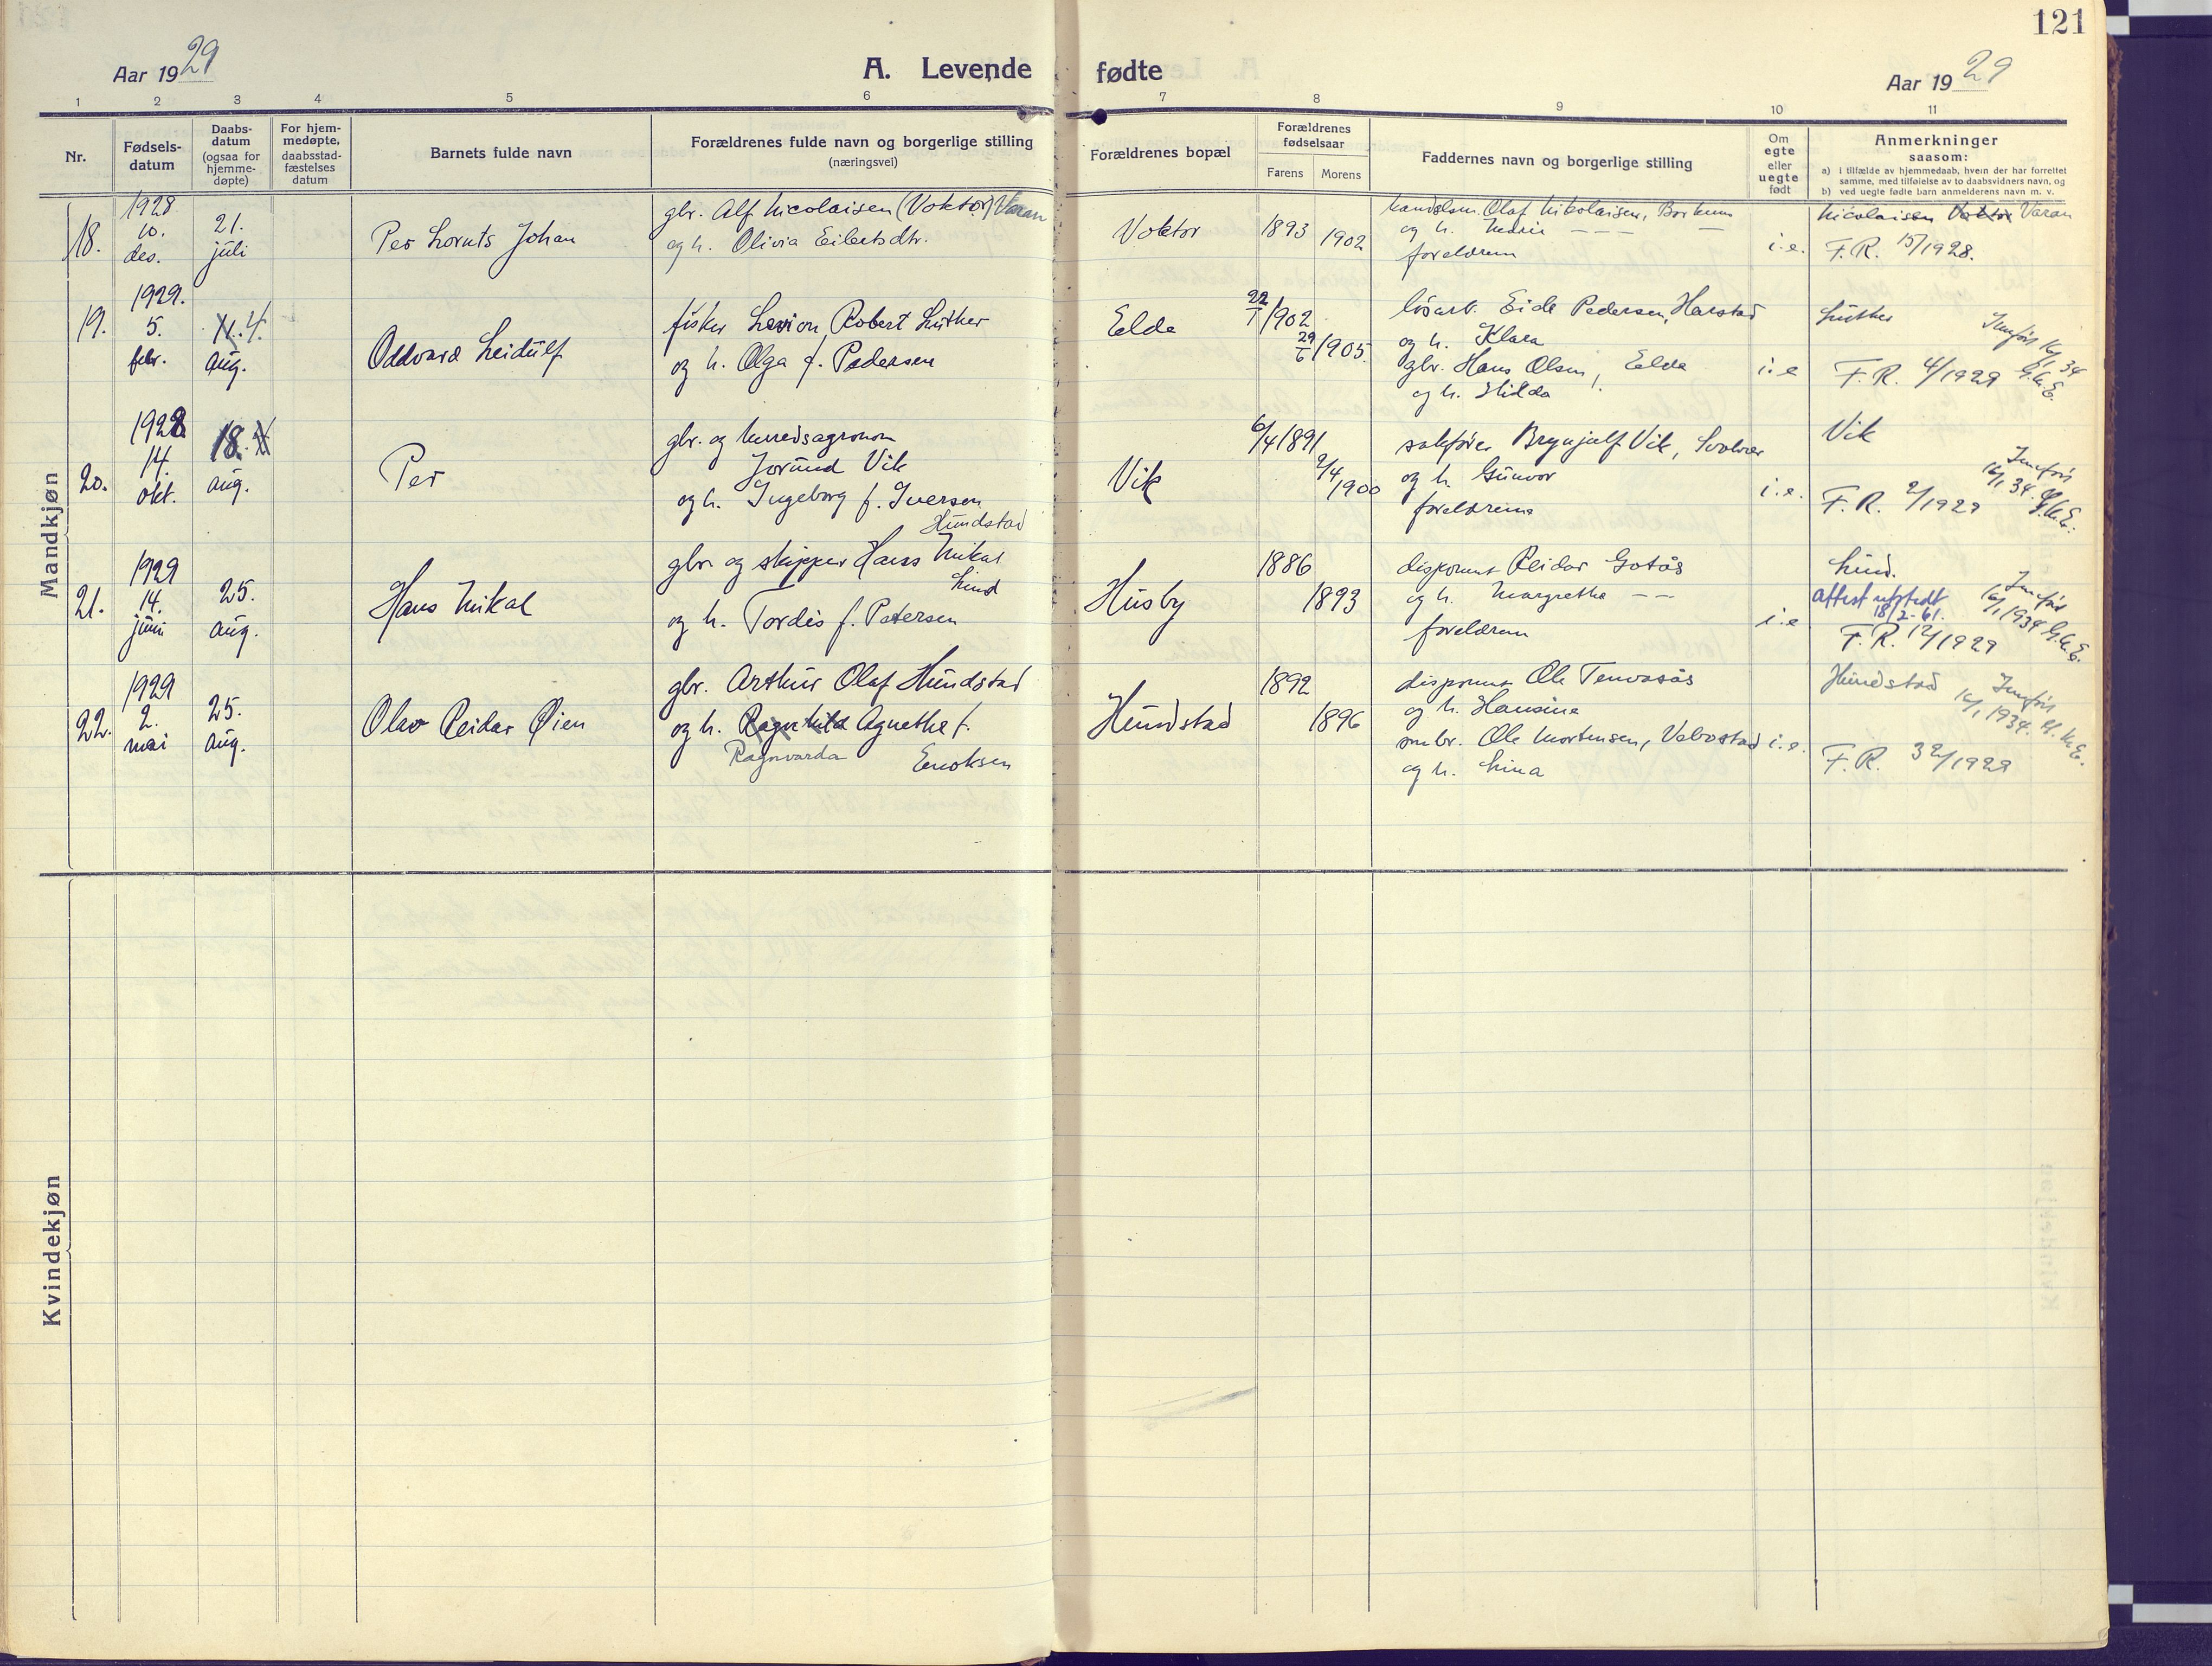 121
Aar 1929
A. Levende fødte
Aar 1929
1 2 3 4 5 6 7 8 9 10 11
Nr.
Fødsels-
datum
Daabs-
datum
(ogsaa for
hjemme-
døpte)
For hjem-
medøpte,
daabsstad-
fæstelses
datum
Barnets fulde navn
Forældrenes fulde navn og borgerlige stilling
(næringsvei)
Forældrenes bopæl
Forældrenes
fødselsaar
Farens Morens
Faddernes navn og borgerlige stilling
Om
egte
eller
uegte
født
Anmerkninger
saasom:
a) i tilfælde av hjemmedaab, hvem der har forrettet
samme, med tilføielse av to daabsvidners navn, og
b) ved uegte fødte barn anmelderens navn m. v.
Mandkjøn
18.
1928
10.
des.
21.
juli
Per Lornts Johan
gbr. Alf Nicolaisen (Voktor) Varan
og h. Olivia Eilertsdtr.
Voktor
1893
1902
handelsm. Olaf Nikolaisen, Borkum
og h.
foreldrene
i.e.
Nicolaisen Voktor Varan
F.R. 15/1928.
19.
1929.
5.
febr.
11. 4.
aug.
Oddvard Leidulf
fisker Levion Robert Luther
og h. Olga f. Pedersen
Elde
22/1 1902
29/6 1905
løsarb. Eide Pedersen, Harstad
og h. Klara
gbr. Hans Olsen, Elde
og h. Hilda
i.e
Luther
Jmfört 16/1 34
G.K.E.
F.R. 4/1929
20.
1928
14.
okt.
18.
aug.
Per
gbr. og herredsagronom
Jorund Vik
og h. Ingeborg f. Iversen
Hundstad
Vik
6/4 1891
2/4 1900
sakfører Brynjulf Vik, Svolvær
og h. Gunvor
foreldrene
i.e.
Vik
Jmfört
16/1 34. G.K.E.
F.R. 2/1929
21.
1929
14.
juni
25.
aug.
Hans Mikal
gbr. og skipper Hans Mikal
Lind
og h. Tordis f. Petersen
Husby
1886
1893
disponent Reidar Gotås
og h. Margrethe - -
foreldrene
i.e
Lind.
Attest utstedt
18/2-61.
Jmfört
16/1 1934 G.K.E.
F.R. 12/1929
22.
1929
2.
mai
25.
aug.
Olav Reidar Øien
gbr. Arthur Olaf Hundstad
og h. Ragnhild Agnethe f.
Ragnvarda Enoksen
Hundstad
1892
1896
disponent Ole Tenvasås
og h. Hansine
smbr. Ole Mortensen, Vebostad
og h. Lina
i.e.
Hundstad
Jmfört
16/1 1934. G.K.E.
F.R. 32/1929
Kvindekjøn